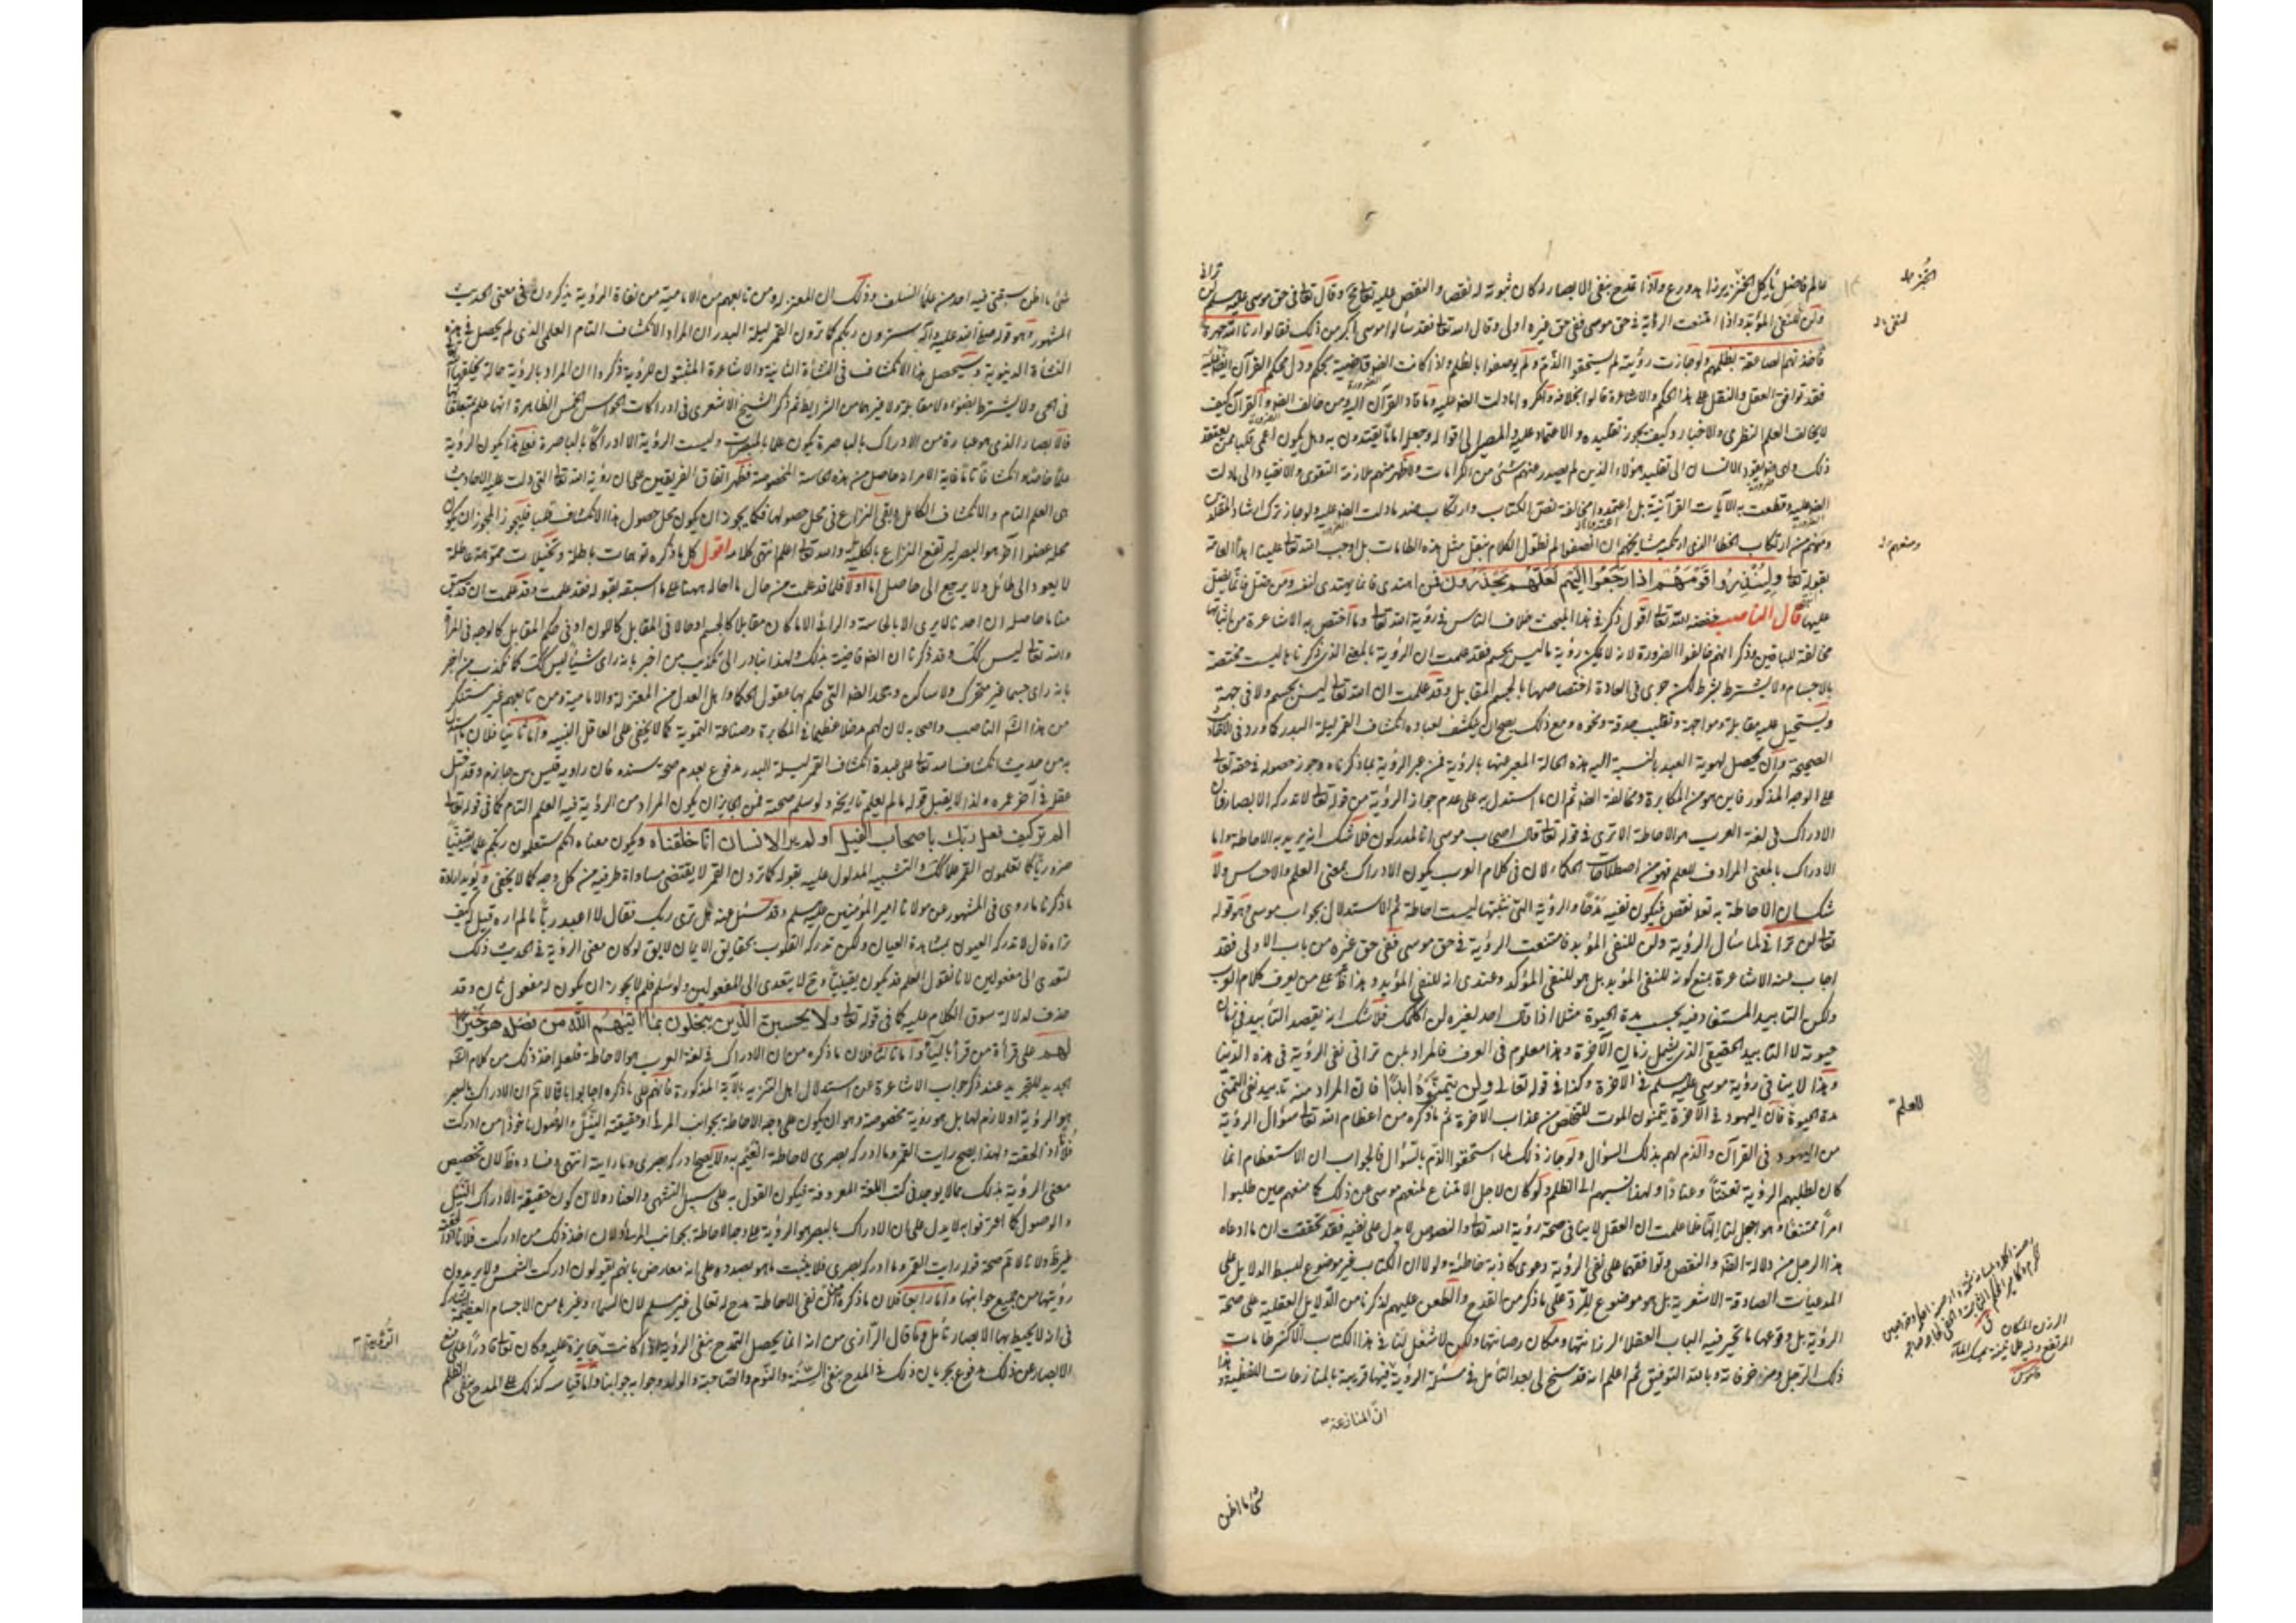 عالم فاضل يأكل الخبز يرزا هد ورع واذا تمدح بنفى الابصار له كان ثبوته له نقصا والنقص عليه تعالى مح وقال تعالى فى حق موسى عليه السلم لن ترانى
ولن للنفى المؤبد واذا امتنعت الرؤية فى حق موسى ففى حق غيره اولى وقال الله تعالى فقد سألوا موسى اكبر من ذلك فقالوا ارنا الله جهرة
فاخذتهم الصاعقة بظلمهم ولو جازت رؤيته لم يستحقوا الذم ولم يوصفوا بالظلم واذا كانت الضرورة قاضية بحكم ودل محكم القرآن ايضا عليه
فقد توافق العقل والنقل على هذا الحكم والاشاعرة قالوا بخلافه وانكروا ما دلت الضرورة عليه وما قاد القرآن اليه ومن خالف الضرورة والقرآن كيف
لا يخالف العلم النظرى والاخبار وكيف يجوز تقليده والاعتماد عليه والمصير الى اقواله وجعله اماما يقتدون به وهل يكون اعمى قلبا ممن يعتقد
ذلك واى ضرورة تقود الانسان الى تقليد هؤلاء الذين لم يصدر عنهم شئ من الكرامات ولا ظهر منهم ملازمة التقوى والانقياد الى ما دلت
الضرورة عليه وقطعت به الآيات القرآنية بل اعتمدوا مخالفة نص الكتاب وارتكاب ضد ما دلت الضرورة عليه ولو جاز ترك ارشاد المقلدين
ومنعهم من ارتكاب الخطاء الذى ارتكبه مشايخهم ان انصفوا لم نطول الكلام بنقل مثل هذه الطامات بل اوجب الله تعالى علينا اهداء العامة
بقوله تعالى ولينذروا قومهم اذا رجعوا اليهم لعلهم يحذرون فمن اهتدى فانما يهتدى لنفسه ومن ضل فانما يضل
عليها قال الناصب خفضه الله تعالى اقول ذكر فى هذا المبحث خلاف الناس فى رؤية الله تعالى وما اختص به الاشاعرة من اثباتها
مخالفة للباقين وذكر انهم خالفوا الضرورة لانه لا يمكن رؤية ما ليس بجسم فقد علمت ان الرؤية بالمعنى الذى ذكرناه ليست مختصة
بالاجسام ولا يشترط بشرط لكن جرى فى العادة اختصاصها بالجسم المقابل وقد علمت ان الله تعالى ليس بجسم ولا فى جهة
ويستحيل عليه مقابلة ومواجهة وتقليب حدقة ونحوه ومع ذلك يصح ان ينكشف لعباده انكشاف القمر ليلة البدر كما ورد فى الاحاديث
الصحيحة وان يحصل لهوية العبد بالنسبة اليه هذه الحالة المعبر عنها بالرؤية فمن عبر الرؤية بما ذكرناه وجوز حصوله فى حقه تعالى
على الوجه المذكور فاين هو من المكابرة ومخالفة الضرورة ثم ان ما استدل به على عدم جواز الرؤية من قوله تعالى لا تدركه الابصار فان
الادراك فى لغة العرب هو الاحاطة الا ترى فى قوله تعالى قال اصحاب موسى انا لمدركون فلا شك انه يريد به الاحاطة واما
الادراك بالمعنى المرادف للعلم فهو من اصطلاحات الحكماء لا ان فى كلام العرب يكون الادراك بمعنى العلم والاحساس ولا
شك ان الاحاطة به تعالى نقص فيكون نفيه مدحا والرؤية التى نثبتها ليست احاطة ثم الاستدلال بجواب موسى وهو قوله
تعالى لن ترانى لما سأل الرؤية ولن للنفى المؤبد فامتنعت الرؤية فى حق موسى ففى حق غيره من باب الاولى فقد
اجاب عنه الاشاعرة بمنع كونه للنفى المؤبد بل هو للنفى المؤكد وعندى انه للنفى المؤبد وهذا ظاهر على من يعرف كلام العرب
ولكن التابيد المستفاد فيه بحسب مدة الحيوة مثلا اذا قال احد لغيره لن اكلمك فلا شك انه يقصد التأبيد فى زمان
حيوته لا التابيد الحقيقى الذى يشمل زمان الآخرة وهذا معلوم فى العرف فالمراد بلن ترانى نفى الرؤية فى هذه الدنيا
وهذا لا ينافى رؤية موسى عليه السلم فى الاخرة وكذا فى قوله تعالى ولن يتمنوه ابدا فان المراد منه تابيد نفى التمنى
مدة الحيوة فان اليهود فى الآخرة يتمنون الموت للتخلص من عذاب الاخرة ثم ما ذكره من اعظام الله تعالى سؤال الرؤية
من اليهود فى القرآن والذم لهم بذلك السؤال ولو جاز ذلك لما استحقوا الذم بالسؤال فالجواب ان الاستعظام انما
كان لطلبهم الرؤية تعنتا وعنادا ولهذا نسبهم الى الظلم ولو كان لاجل الامتناع لمنعهم موسى عن ذلك كما منعهم حين طلبوا
امرا ممتنعا وهو اجعل لنا الها فلما علمت ان العقل لا ينافى صحة رؤية الله تعالى والنصوص لا يدل على نفيه فقد تحققت ان ما ادعاه
هذا الرجل من دلالة العقل والنص وتوافقهما على نفى الرؤية دعوى كاذبة خاطئة ولولا ان الكتاب غير موضوع لبسط الدلايل على
المدعيات الصادقة الاشعرية بل هو موضوع للرد على ما ذكر من القدح والطعن عليهم لذكرنا من الدلايل العقلية على صحة
الرؤية بل وقوعها ما تحير فيه الباب العقلاء لرزانتها ومكان رصانتها ولكن لا شغل لنا فى هذا الكتاب الا كسر طامات
ذلك الرجل ومزخرفاته وبالله التوفيق ثم اعلم انه قد سنح لى بعد التأمل فى مسئلة الرؤية قريبة بالمنازعات اللفظية
ان المنازعة
شئ ما اظن
الخبز
لنفى
ومنعهم
للعلم
قاموس
شئ ما اظن سبقنى فيه احد من علماء السلف وذلك ان المعتزلة ومن تابعهم من الامامية من نفاة الرؤية يذكرون فى معنى الحديث
المشهور وهو قوله صلى الله عليه وآله سترون ربكم كما ترون القمر ليلة البدر ان المراد الانكشاف التام العلمى الذى لم يحصل فى هذه
النشأة الدنيوية وسيحصل هذا الانكشاف فى النشأة الثانية والاشاعرة المثبتون للرؤية ذكروا ان المراد بالرؤية حالة يخلقها الله
فى الحى ولا يشترط بضوء ولا مقابلة ولا غيرهما من الشرايط ثم ذكر الشيخ الاشعرى فى ادراكات الحواس الخمس الظاهرة انها علم بمتعلقاتها
فالابصار الذى هو عبارة من الادراك بالباصرة يكون علما بالمبصرات وليست الرؤية الا ادراكا بالباصرة فعلى هذا يكون الرؤية
علما خاصا وانكشافا تاما غاية الامر انه حاصل من هذه الحاسة المخصوصة فظهر اتفاق الفريقين على ان رؤية الله تعالى التى دلت عليه الاحاديث
هى العلم التام والانكشاف الكامل وبقى النزاع فى محل حصولها فكما يجوز ان يكون محل حصول هذا الانكشاف قلبا فليجوز المجوز ان يكون
محله عضوا آخر هو البصر ليرتفع النزاع بالكلية والله تعالى اعلم انتهى كلامه اقول كل ما ذكره توهمات باطلة وتخيلات مموهة عاطلة
لا يعود الى طائل ولا يرجع الى حاصل اما اولا فلما قد علمت من حال ما احاله ههنا على ما سبقه بقوله فقد علمت وقد علمت ان قد سبق
منا ما حاصله ان احدنا لا يرى الا بالحاسة والرائى الا ما كان مقابلا كالجسم او حالا فى المقابل كاللون او فى حكم المقابل كالوجه فى المرآة
والله تعالى ليس كك وقد ذكرنا ان الضرورة قاضية بذلك ولهذا نبادر الى تكذيب من اخبر بانه راى شيئا ليس كك كما نكذب من اخبر
بانه راى جسما غير متحرك ولا ساكن وجحد الضرورة التى حكم بها عقول الحكماء واهل العدل من المعتزلة والامامية ومن تابعهم غير مستنكر
من هذا الناصب واصحابه لان لهم مدخلا عظيما فى المكابرة وصناعة التمويه كما لا يخفى على العاقل النبيه واما ثانيا فلان ما استدل
به من حديث انكشاف الله تعالى على عبده انكشاف القمر ليلة البدر مدفوع بعدم صحة سنده فان راويه قيس بن حازم وقد اختل
عقله فى آخر عمره ولذا لا يقبل قوله ما لم يعلم تاريخه ولو سلم صحته فمن الجايز ان يكون المراد من الرؤية فيه العلم التام كما فى قوله تعالى
الم تر كيف فعل ربك باصحاب الفيل او لم ير الانسان انا خلقناه ويكون معناه انكم ستعلمون ربكم علما يقينيا
ضروريا كما تعلمون القمر علما كك والتشبيه المدلول عليه بقوله كما ترون القمر لا يقتضى مساواة طرفيه من كل وجه كما لا يخفى ويؤيد ارادة
ما ذكرنا ما روى فى المشهور عن مولانا امير المؤمنين عليه السلم وقد سئل عنه هل ترى ربك فقال لا اعبد ربا لم اره قيل كيف
تراه قال لا تدركه العيون بمشاهدة العيان ولكن تدركه القلوب بحقايق الايمان لا يق لو كان معنى الرؤية فى الحديث ذلك
لتعدى الى مفعولين لانا نقول العلم قد يكون يقينيا وح لا يتعدى الى المفعولين ولو سلم فلم لا يجوز ان يكون له مفعول ثان وقد
حذف لدلالة سوق الكلام عليه كما فى قوله تعالى ولا يحسبن الذين يبخلون بما آتيهم الله من فضله هو خيرا
لهم على قرأة من قرأ بالياء واما ثالثا فلان ما ذكره من ان الادراك فى لغة العرب هو الاحاطة فلعله اخذ ذلك من كلام الشرح
الجديد للتجريد عند ذكر جواب الاشاعرة عن استدلال اهل التنزيه بالآية المذكورة فانهم على ما ذكره اجابوا بانا لا نم ان الادراك بالبصر
هو الرؤية او لازم لها بل هو رؤية مخصوصة وهو ان يكون على وجه الاحاطة بجوانب المرئى اذ حقيقته النيل والوصول ماخوذ من ادركت
فلانا اذا لحقته ولهذا يصح رايت القمر وما ادركه بصرى لاحاطة الغيم به ولا يصح ادركه بصرى وما رايته انتهى وفساده ظ لان تخصيص
معنى الرؤية بذلك مما لا يوجد فى كتب اللغة المعروفة فيكون القول به على سبيل التشهى والعناد ولان كون حقيقة الادراك النيل
والوصول كما اعترفوا به لا يدل على ان الادراك بالبصر هو الرؤية على وجه الاحاطة بجوانب المرئى ولان اخذ ذلك من ادركت فلانا اذا لحقته
غير ظ ولانا لا نم صحة قوله رايت القمر وما ادركه بصرى فلا يثبت ما هو بصدده على انه معارض بانهم يقولون ادركت الشمس ولا يريدون
رؤيتها من جميع جوانبها واما رابعا فلان ما ذكره من ان نفى الاحاطة مدح له تعالى غير مسلم لان السماء وغيرها من الاجسام العظيمة يشاركه
فى انه لا يحيط بها الابصار تأمل وما قال الرازى من انه انما يحصل التمدح بنفى الرؤية لو كانت جايزة عليه وكان تعالى قادرا على منع
الابصار عن ذلك مدفوع بجريان ذلك فى المدح بنفى السنة والنوم والصاحبة والولد وجوابه جوابنا واما قياسه كذلك على المدح بنفى الظلم
الرؤية